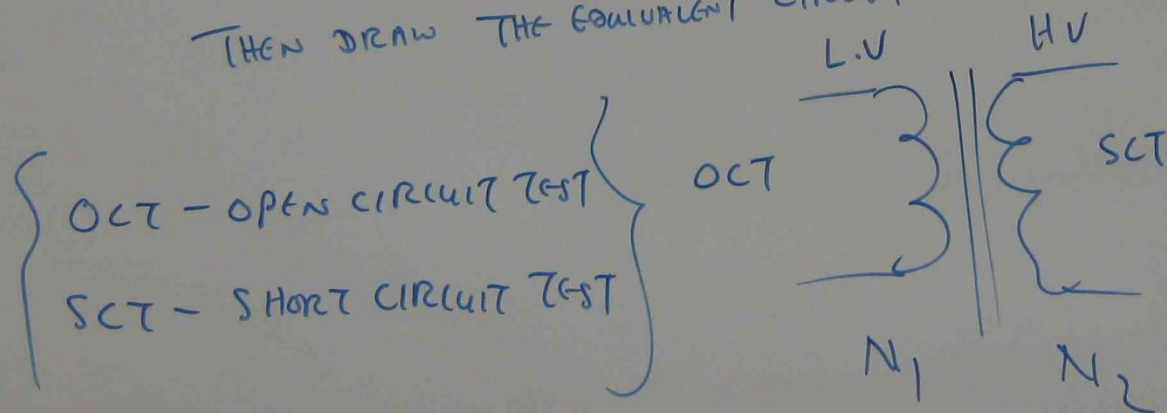 THEN DRAW THE EQUIVALENT
L.V HV
OCT - OPEN CIRCUIT TEST
SCT - SHORT CIRCUIT TEST
OCT SCT
N1 N2